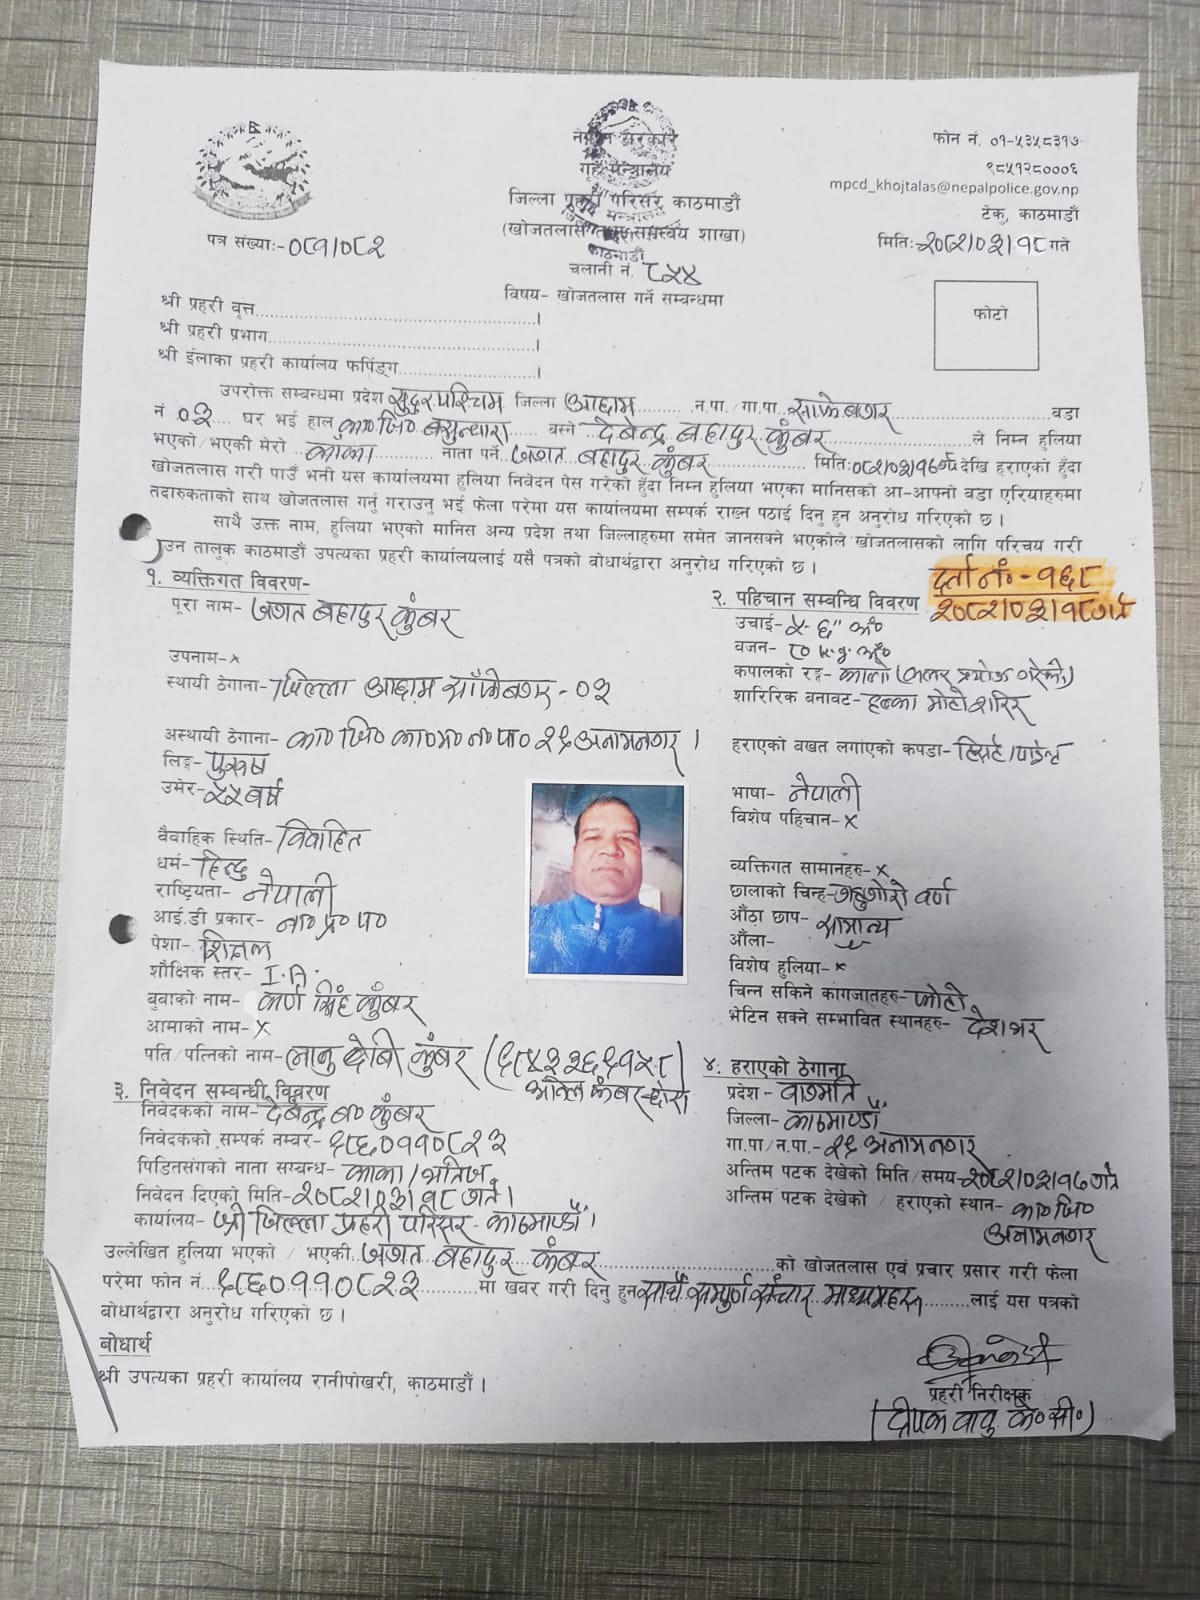 नेपाल सरकार
गृह मन्त्रालय
जिल्ला प्रहरी परिसर काठमाडौं
(खोजतलास तथा समन्वय शाखा)
काठमाडौं
फोन नं. ०१-५३५८३१७
९८५१२८०००६
mpcd_khojtalas@nepalpolice.gov.np
टेकु, काठमाडौं
पत्र संख्याः-०८१।०८२
चलानी नं. ८५४
मितिः २०८२।०३।१८ गते
विषय- खोजतलास गर्ने सम्बन्धमा
श्री प्रहरी वृत्त..............................।
श्री प्रहरी प्रभाग..............................।
श्री ईलाका प्रहरी कार्यालय फर्पिङ्ग..............................।
फोटो
उपरोक्त सम्बन्धमा प्रदेश सुदुरपश्चिम जिल्ला अछाम न.पा./गा.पा. साँफेबगर वडा
नं ०३ घर भई हाल का०जि० बसुन्धारा बस्ने देबेन्द्र बहादुर कुंबर ले निम्न हुलिया
भएको/भएकी मेरो काका नाता पर्ने जगत बहादुर कुंबर मितिः०८२।०३।१७गते देखि हराएको हुँदा
खोजतलास गरी पाउँ भनी यस कार्यालयमा हुलिया निवेदन पेस गरेको हुँदा निम्न हुलिया भएका मानिसको आ-आफ्नो वडा एरियाहरुमा
तदारुकताको साथ खोजतलास गर्नु गराउनु भई फेला परेमा यस कार्यालयमा सम्पर्क राख्न पठाई दिनु हुन अनुरोध गरिएको छ ।
साथै उक्त नाम, हुलिया भएको मानिस अन्य प्रदेश तथा जिल्लाहरुमा समेत जानसक्ने भएकोले खोजतलासको लागि परिचय गरी
उन तालुक काठमाडौं उपत्यका प्रहरी कार्यालयलाई यसै पत्रको बोधार्थद्वारा अनुरोध गरिएको छ ।
दर्ता नं०-१६८
२०८२।०३।१८गते
१. व्यक्तिगत विवरण-
पूरा नाम- जगत बहादुर कुंबर
उपनाम-x
स्थायी ठेगाना- जिल्ला अछाम साँफेबगर-०३
अस्थायी ठेगाना- का० जि० का०म०न०पा० २९ अनामनगर ।
लिङ्ग- पुरुष
उमेर- ५५ बर्ष
वैवाहिक स्थिति- विवाहित
धर्म- हिन्दु
राष्ट्रियता- नेपाली
आई.डी प्रकार- ना० प्र० प०
पेशा- शिक्षक
शौक्षिक स्तर- I.A.
बुवाको नाम- कर्ण सिंह कुंबर
आमाको नाम- x
पति/पत्निको नाम- देबी कुंबर
२. पहिचान सम्बन्धि विवरण
उचाई- ५-६" अं०
वजन- ८० k.g. अं०
कपालको रङ्ग- कालो (कलर प्रयोग गरेको)
शारिरिक बनावट- हल्का मोटो शरिर
हराएको बखत लगाएको कपडा- टिसर्ट/पाईन्ट
भाषा- नेपाली
विशेष पहिचान- x
व्यक्तिगत सामानहरु- x
छालाको चिन्ह- गहुगोरो वर्ण
औंठा छाप- सामान्य
औंला-
विशेष हुलिया- x
चिन्न सकिने कागजातहरु- फोटो
भेटिन सक्ने सम्भावित स्थानहरु- देशभर
३. निवेदन सम्बन्धी विवरण
निवेदकको नाम- देबेन्द्र ब० कुंबर
निवेदकको सम्पर्क नम्बर- ९८६०११०८२३
पिडितसंगको नाता सम्बन्ध- काका/भतिज
निवेदन दिएको मिति- २०८२।०३।१८ गते।
कार्यालय- श्री जिल्ला प्रहरी परिसर काठमाण्डौं।
४. हराएको ठेगाना
प्रदेश- वागमति
जिल्ला- काठमाण्डौं
गा.पा/न.पा.- २९ अनामनगर
अन्तिम पटक देखेको मिति/समय- २०८२।०३।१७ गते
अन्तिम पटक देखेको / हराएको स्थान- का० जि०
अनामनगर
उल्लेखित हुलिया भएको / भएकी जगत बहादुर कुंबर को खोजतलास एवं प्रचार प्रसार गरी फेला
परेमा फोन नं. ९८६०११०८२३ मा खबर गरी दिनु हुन साथै सम्पूर्ण संचार माध्यमहरु लाई यस पत्रको
बोधार्थद्वारा अनुरोध गरिएको छ ।
बोधार्थ
श्री उपत्यका प्रहरी कार्यालय रानीपोखरी, काठमाडौं ।
प्रहरी निरीक्षक
(दीपक बाबु के० सी०)